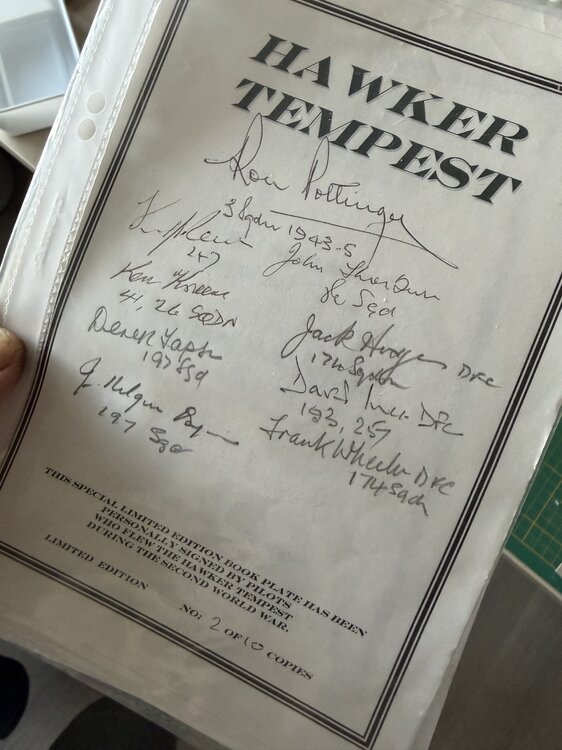 HAWKER
TEMPEST
Ron Pottinger
3 Sqdn 1943-5
247
John
Sqd
Ken
41, 26 SQDN
Jack Hodges DFC
174 Sqdn
Derek Tapson
197 Sqd
David Ince DFC
193, 257
197 Sqd
Frank Wheeler DFC
174 Sqdn
THIS SPECIAL LIMITED EDITION BOOK PLATE HAS BEEN
PERSONALLY SIGNED BY PILOTS
WHO FLEW THE HAWKER TEMPEST
DURING THE SECOND WORLD WAR.
LIMITED EDITION NO: 2 OF 10 COPIES